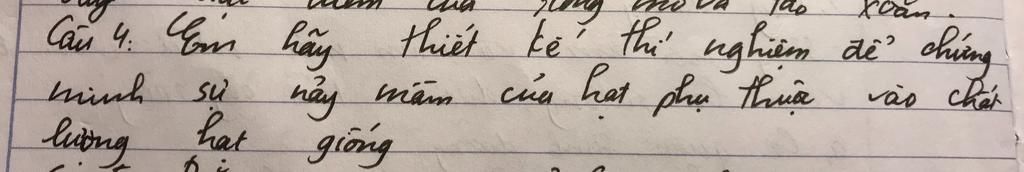 của giống mới và tảo xoắn.
Câu 4: Em hãy thiết kế thí nghiệm để chứng
minh sự nảy mầm của hạt phụ thuộc vào chất
lượng hạt giống